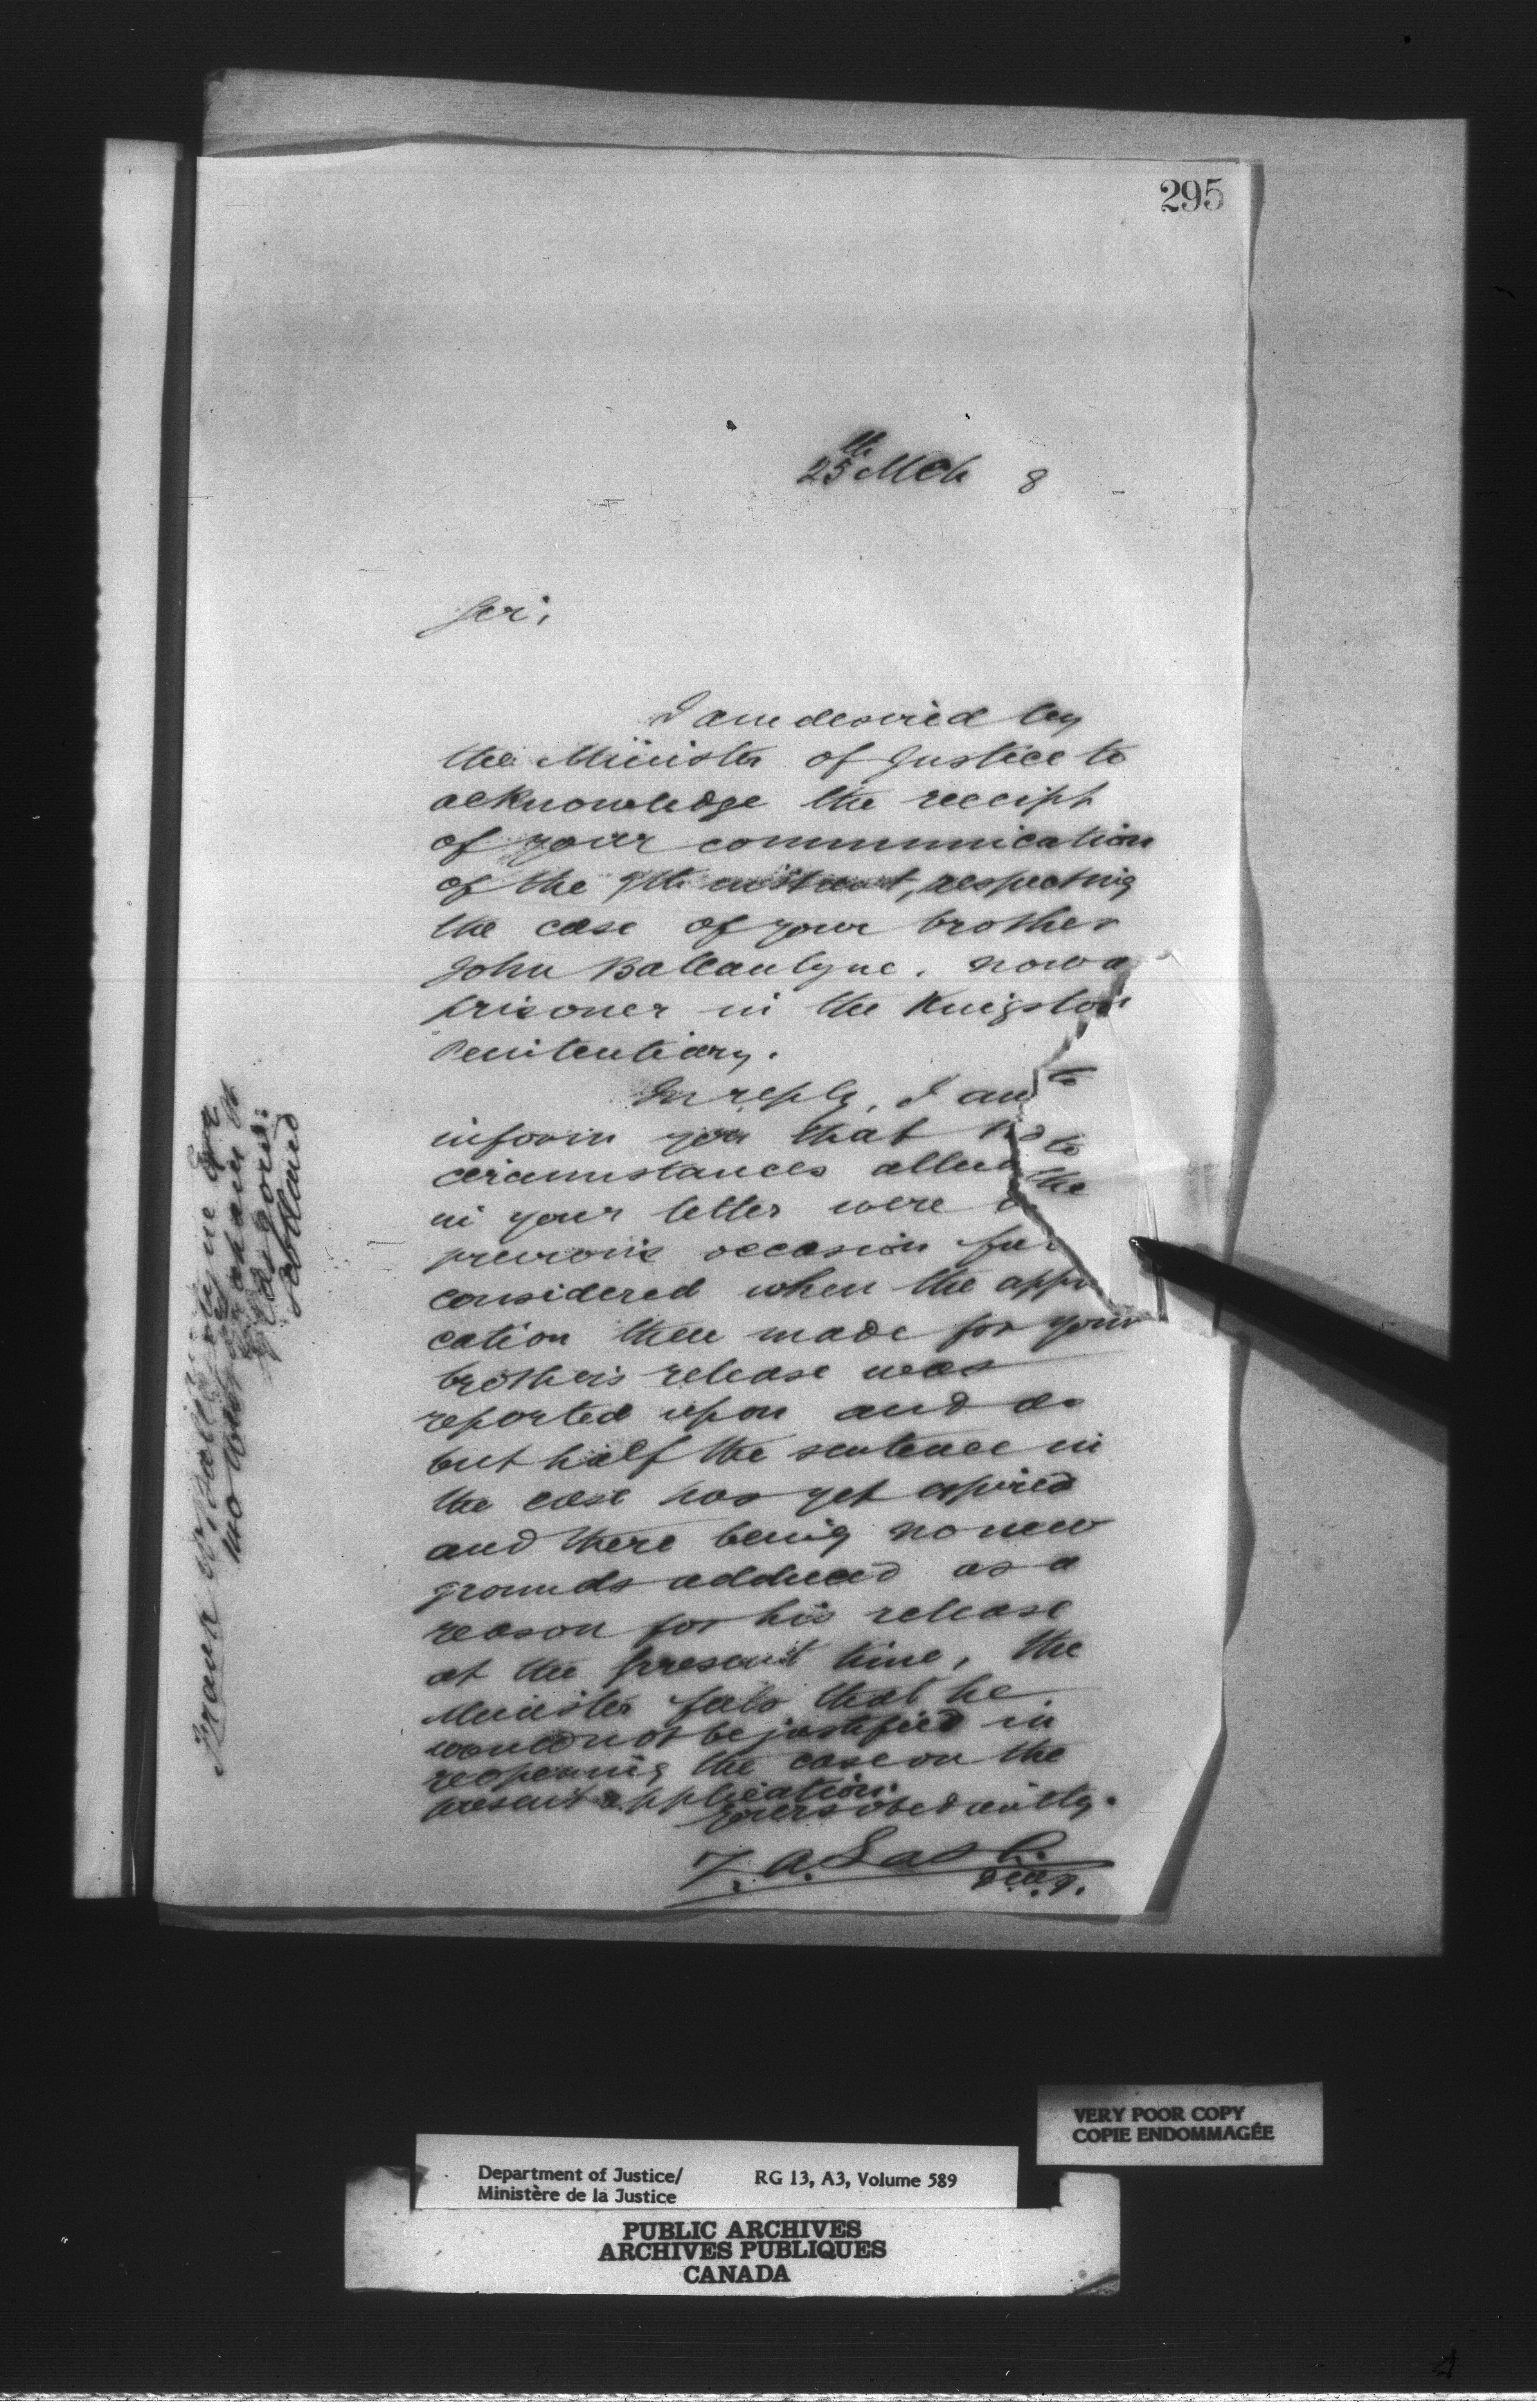 295
25th Mch 8
Sir,
I am desired by
the Minister of Justice to
acknowledge the receipt
of your communication
of the 9th instant, respecting
the case of your brother
John Ballantyne. now a
prisoner in the Kingston
Penitentiary.
In reply, I am to
inform you that
circumstances to
in your letter were the
previous occasion
considered when the appli
cation then made for your
brother's release was
reported upon and as
but half the sentence in
the case has yet expired
and there being no new
grounds adduced as a
reason for his release
at the present time, the
Minister feels that he
would not be justified in
reopening the case on the
present application.
Yours obediently.
Z. A. Lash.
D.M.J.
Ballantyne Esq
Glasgow:
Scotland
VERY POOR COPY
COPIE ENDOMMAGÉE
Department of Justice/ RG 13, A3, Volume 589
Ministère de la Justice
PUBLIC ARCHIVES
ARCHIVES PUBLIQUES
CANADA